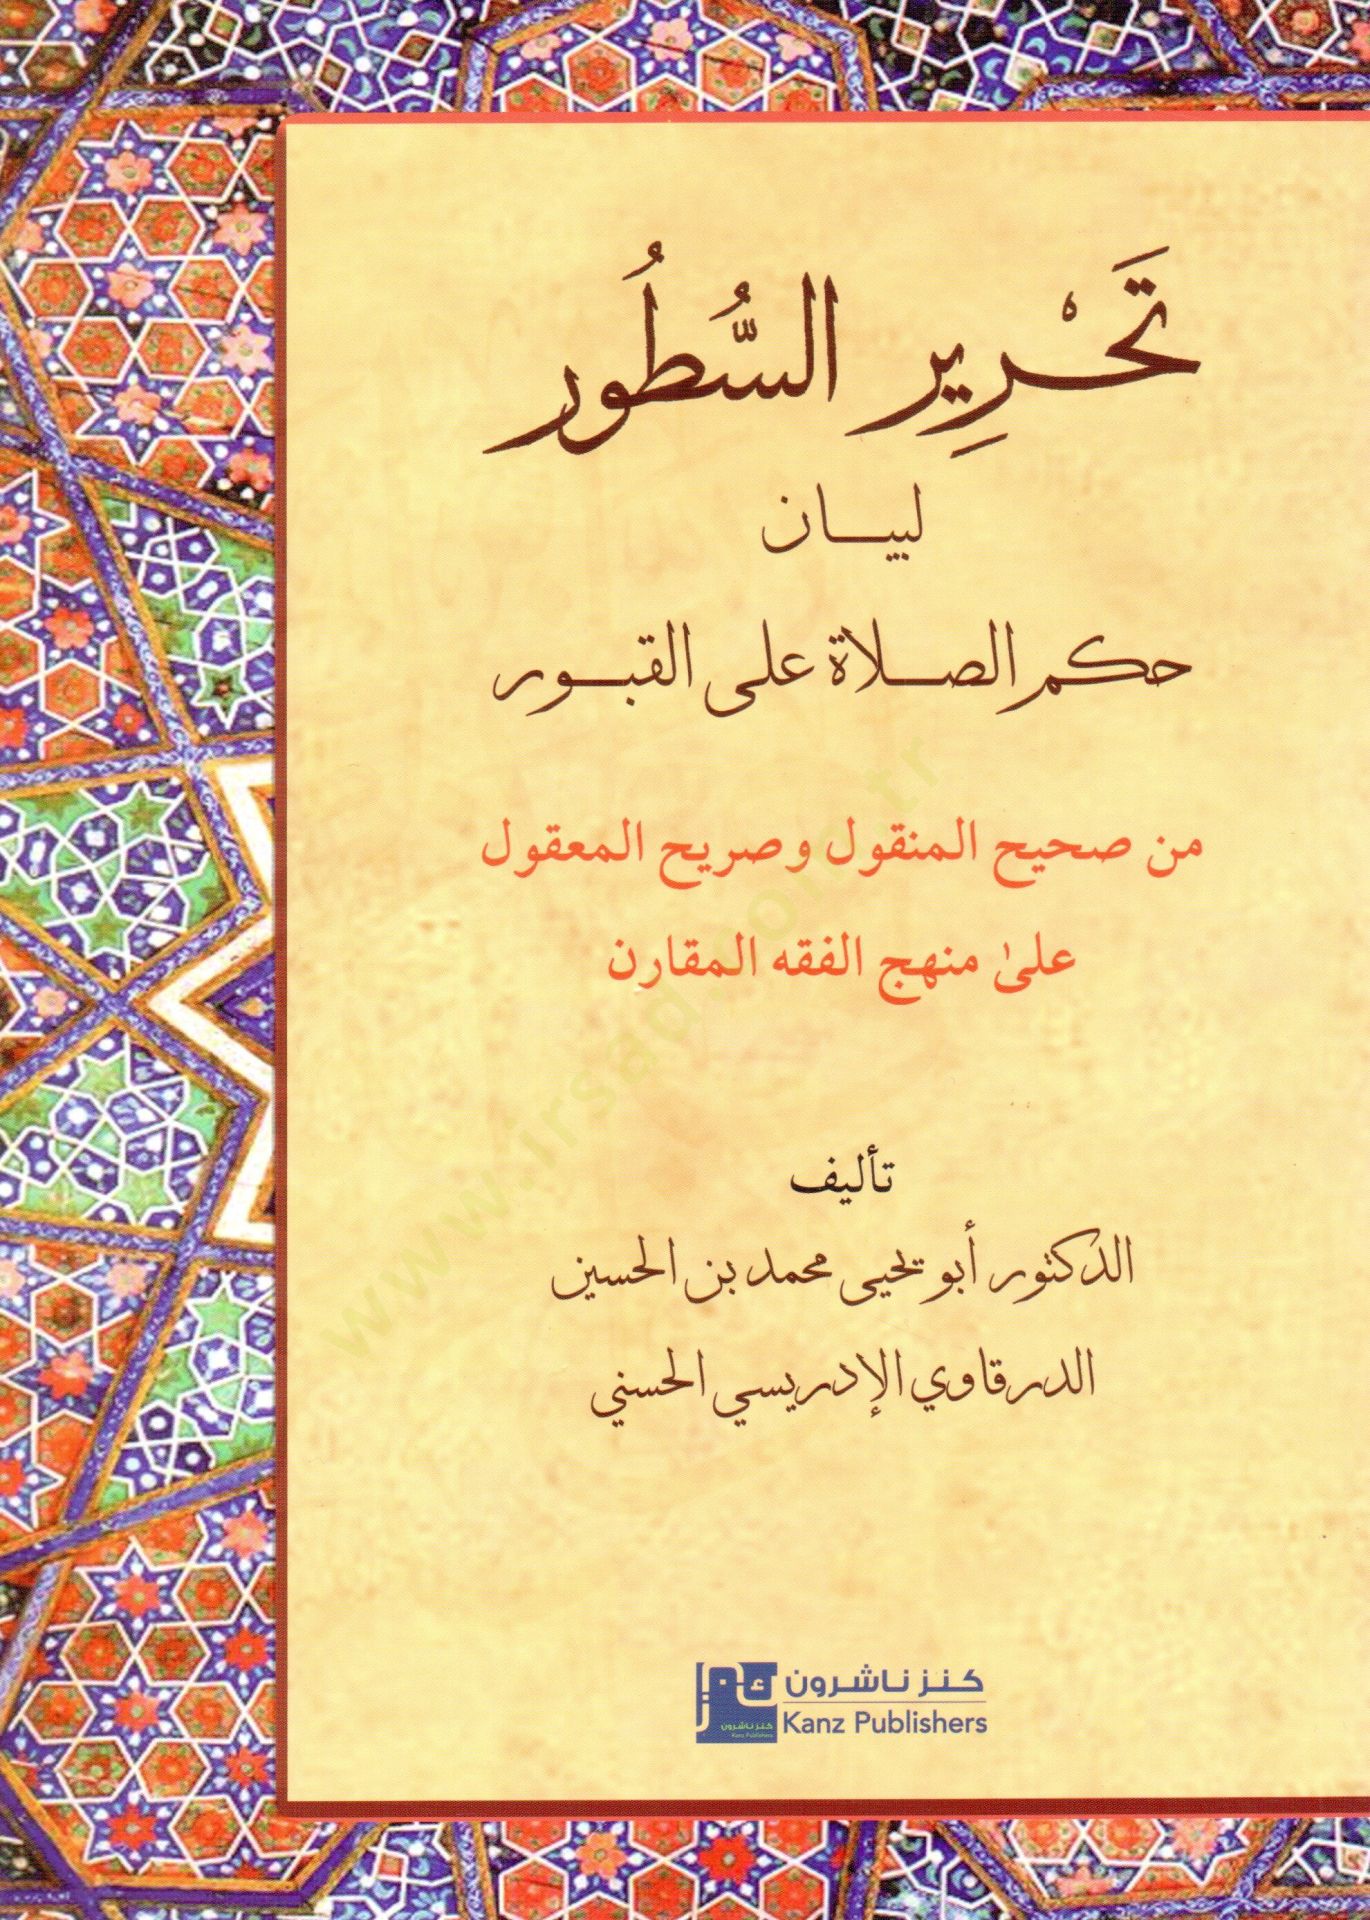 تَحْرِير السُّطُور
لبيان
حكم الصلاة على القبور
من صحيح المنقول وصريح المعقول
على منهج الفقه المقارن
تأليف
الدكتور أبو يحيى محمد بن الحسين
الدرقاوي الإدريسي الحسني
كنز ناشرون
Kanz Publishers
كنز ناشرون
Kanz Publishers
www.irsad.com.tr